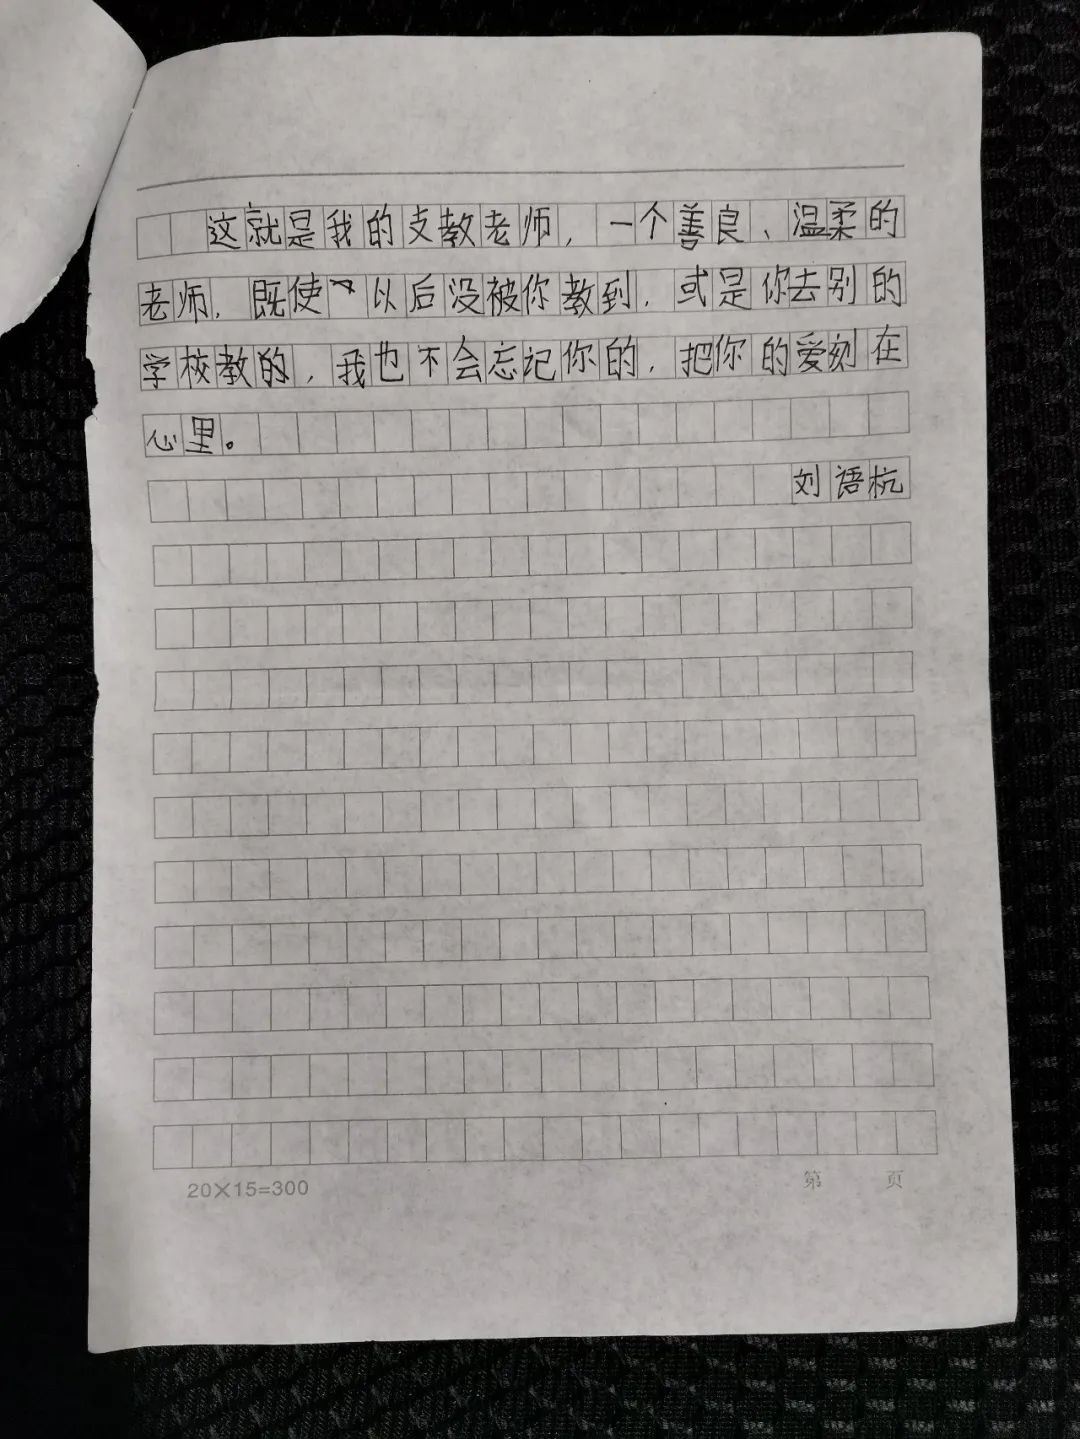 这就是我的支教老师，一个善良、温柔的
老师，既使以后没被你教到，或是你去别的
学校教的，我也不会忘记你的，把你的爱刻在
心里。
刘语杭
20×15=300
第 页